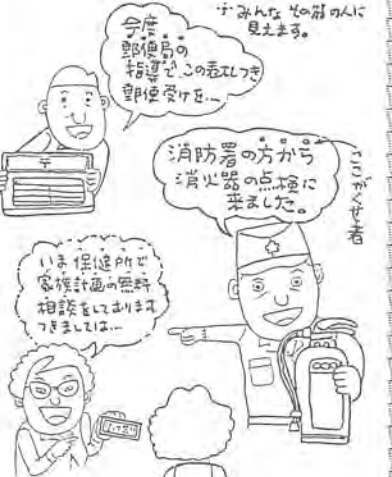 みんな その筋の人に
見えます。
今度
郵便局の
指導で、この表札つき
郵便受けを…
〒
消防署の方から
消火器の点検に
来ました。
ここがくせ者
いま保健所で
家族計画の無料
相談をしております
つきましては…